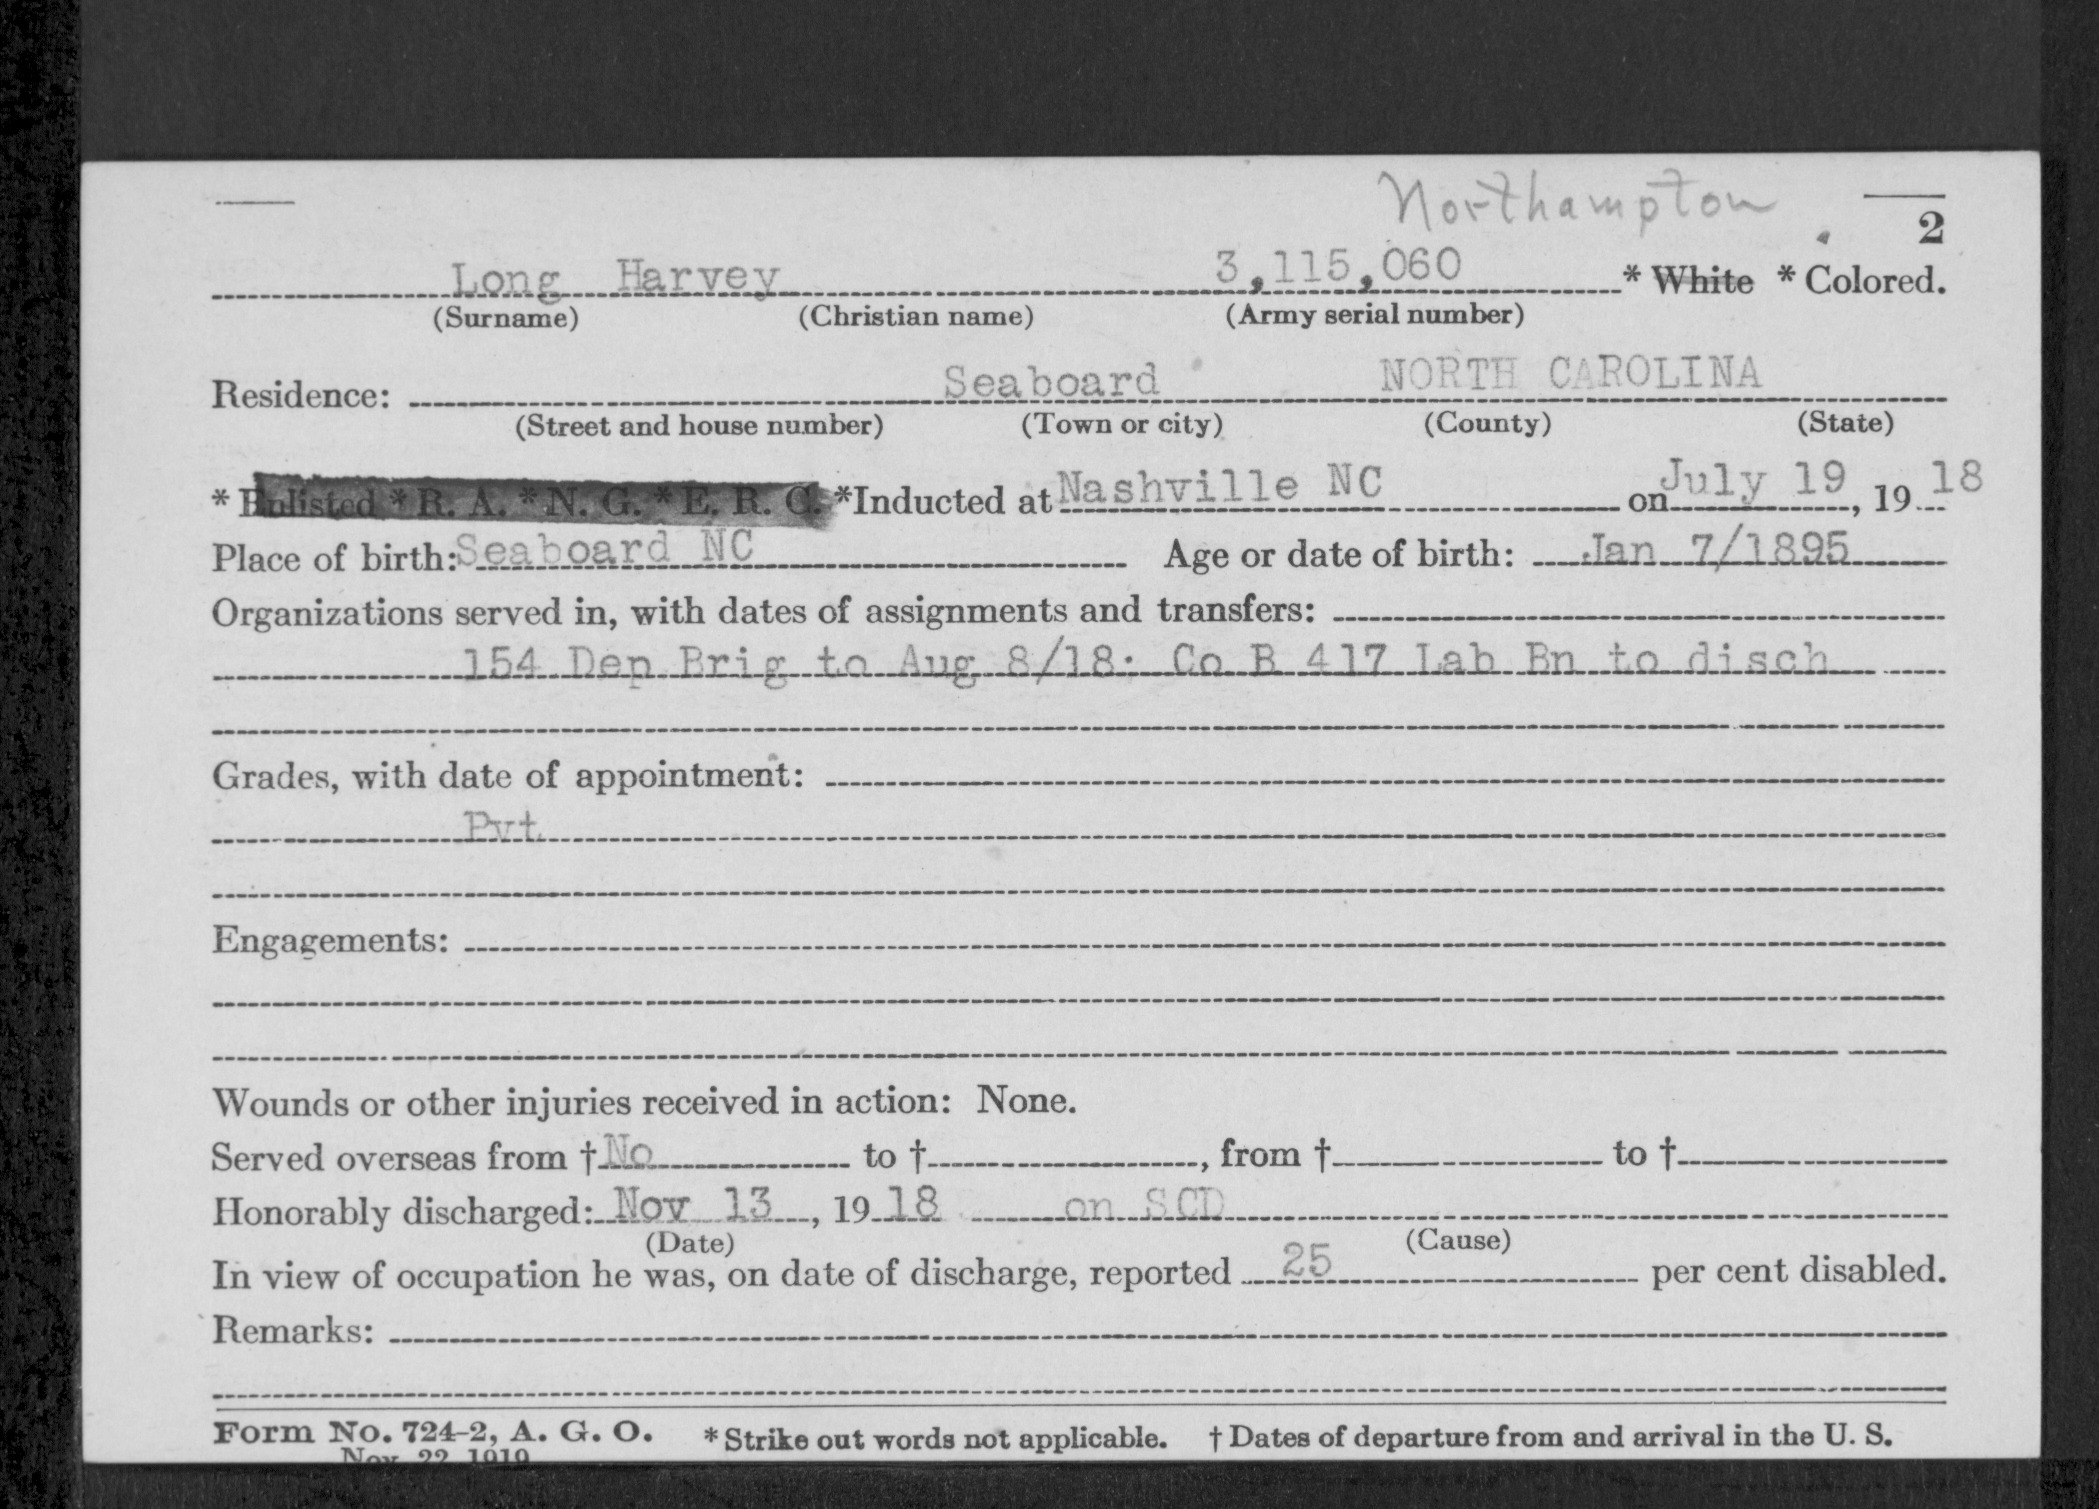 Northampton
2
Long Harvey 3,115,060 * White * Colored.
(Surname) (Christian name) (Army serial number)
Residence: Seaboard NORTH CAROLINA
(Street and house number) (Town or city) (County) (State)
* Enlisted * R. A. * N. G. * E. R. C. *Inducted at Nashville NC on July 19, 19 18
Place of birth: Seaboard NC Age or date of birth: Jan 7/1895
Organizations served in, with dates of assignments and transfers:
154 Dep Brig to Aug 8/18; Co B 417 Lab Bn to disch
Grades, with date of appointment:
Pvt
Engagements:
Wounds or other injuries received in action: None.
Served overseas from † No to †, from † to †
Honorably discharged: Nov 13, 19 18 on SCD
(Date) (Cause)
In view of occupation he was, on date of discharge, reported 25 per cent disabled.
Remarks:
Form No. 724-2, A. G. O. * Strike out words not applicable. † Dates of departure from and arrival in the U. S.
Nov. 22, 1919